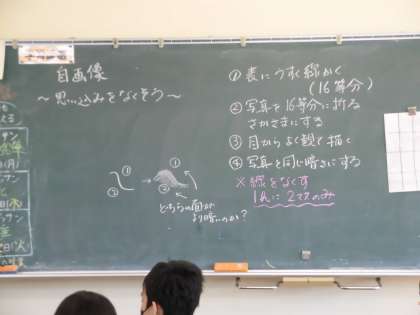 自画像
～思い込みをなくそう～
① 裏にうすく線かく
(16等分)
② 写真を16等分に折る
さかさまにする
③ 目からよく観て描く
④ 写真と同じ暗さにする
※ 線をなくす
1人に2マスのみ
①
②
→
①
②
どちらの面が
より暗いのか？